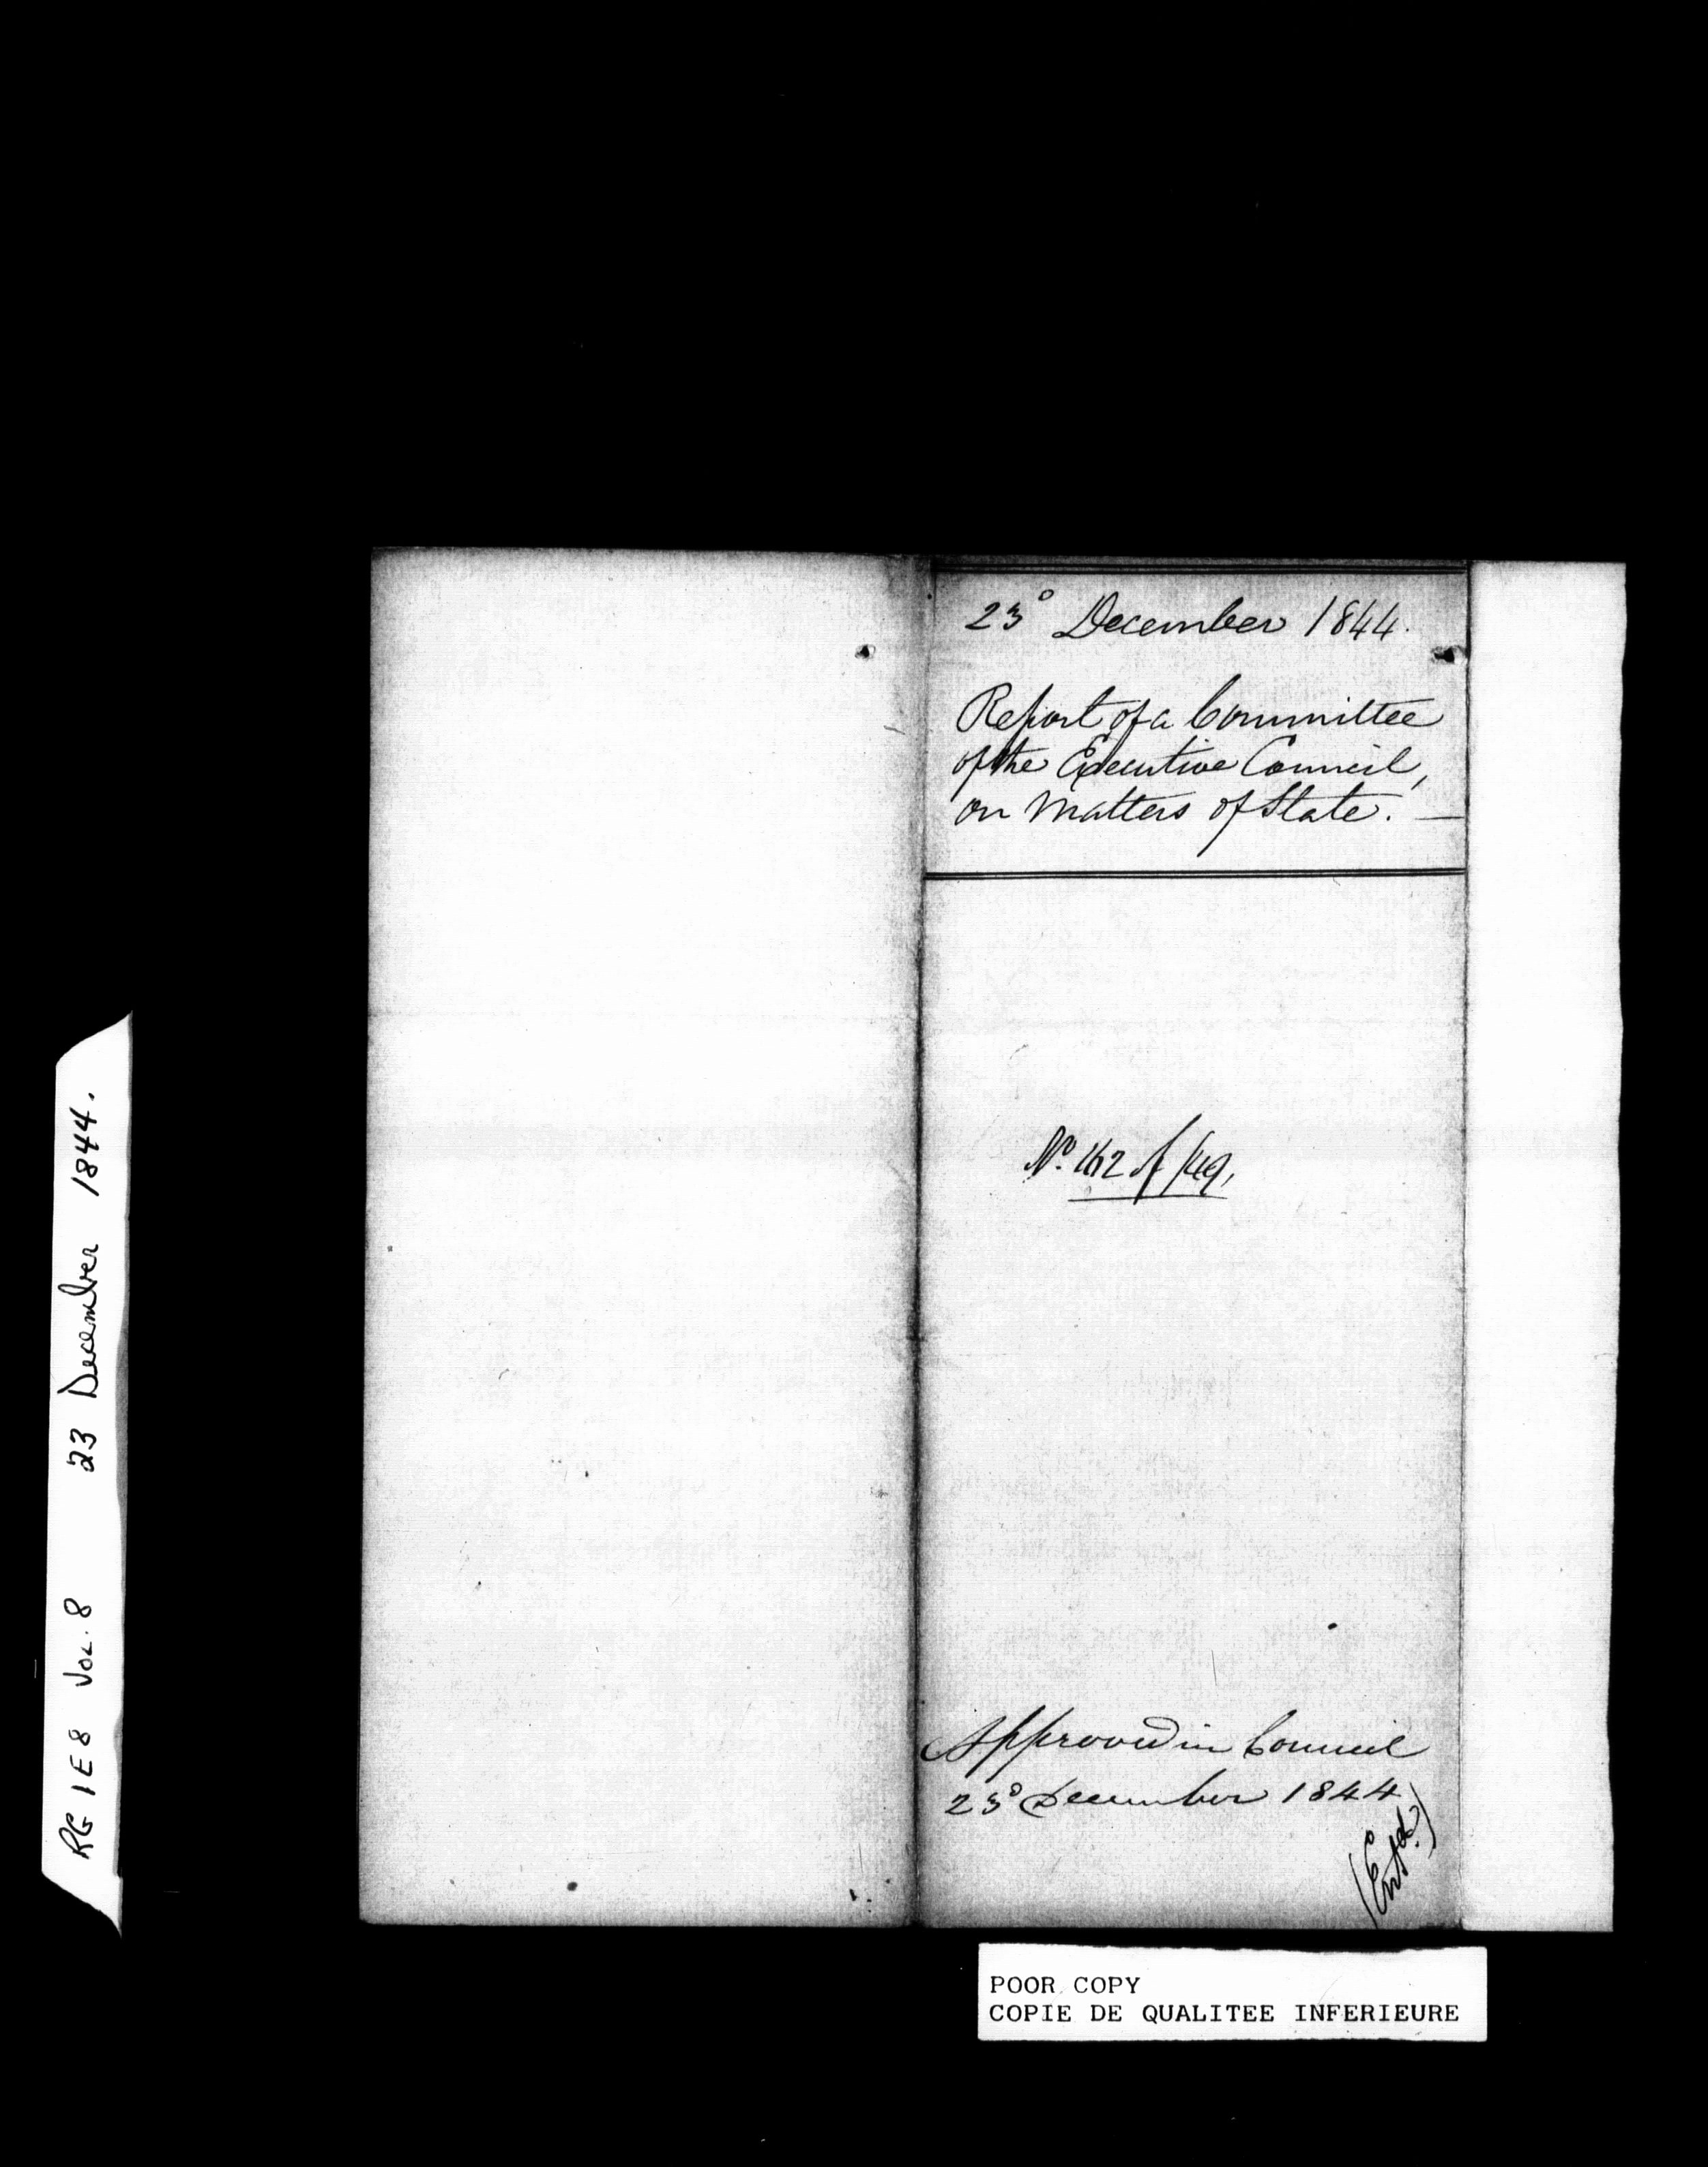 23° December 1844.
Report of a Committee
of the Executive Council,
on Matters of State. —
Nº 162 of
Approved in Council
23° December 1844
(Entd.)
RG 1E8 Vol. 8 23 December 1844.
POOR COPY
COPIE DE QUALITEE INFERIEURE